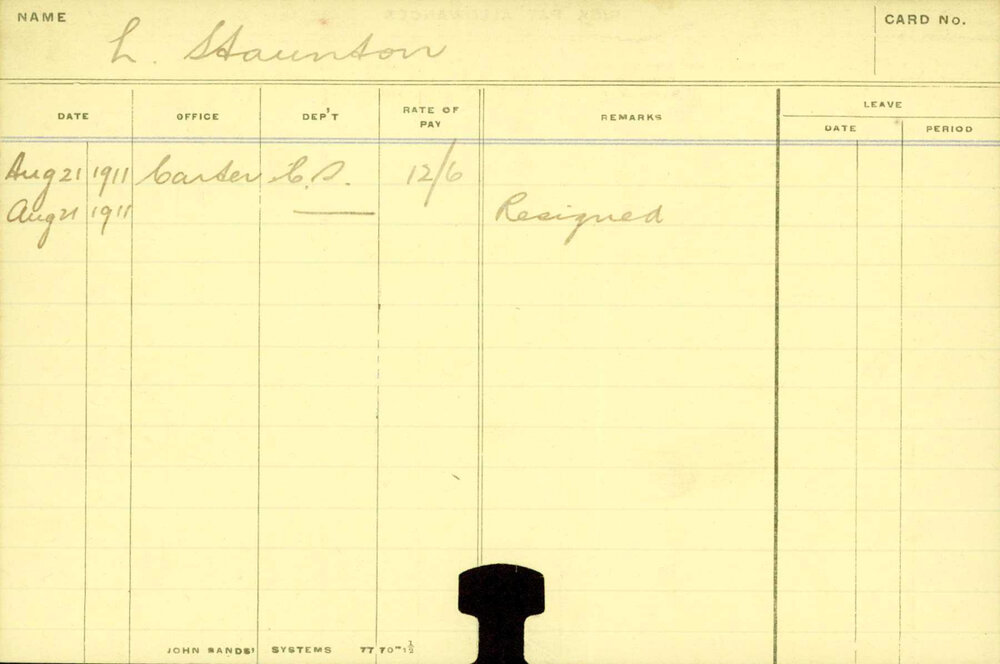 NAME
L. Staunton
CARD No.
DATE OFFICE DEP'T RATE OF PAY REMARKS LEAVE
DATE PERIOD
Aug 21 1911 Carter C.S. 12/6
Aug 21 1911 —— Resigned
JOHN SANDS' SYSTEMS 77 70